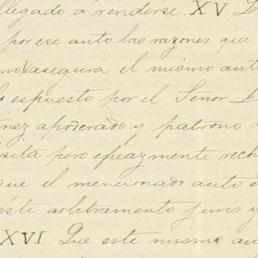 llegado á rendirse. XV.
por ese auto las razones que
asegura el mismo aut
espuesto por el Señor
apoderado y patrono
pero eficazmente rech
que el mencionado auto
este arbitramento juris y
XXVI. Que este mismo au